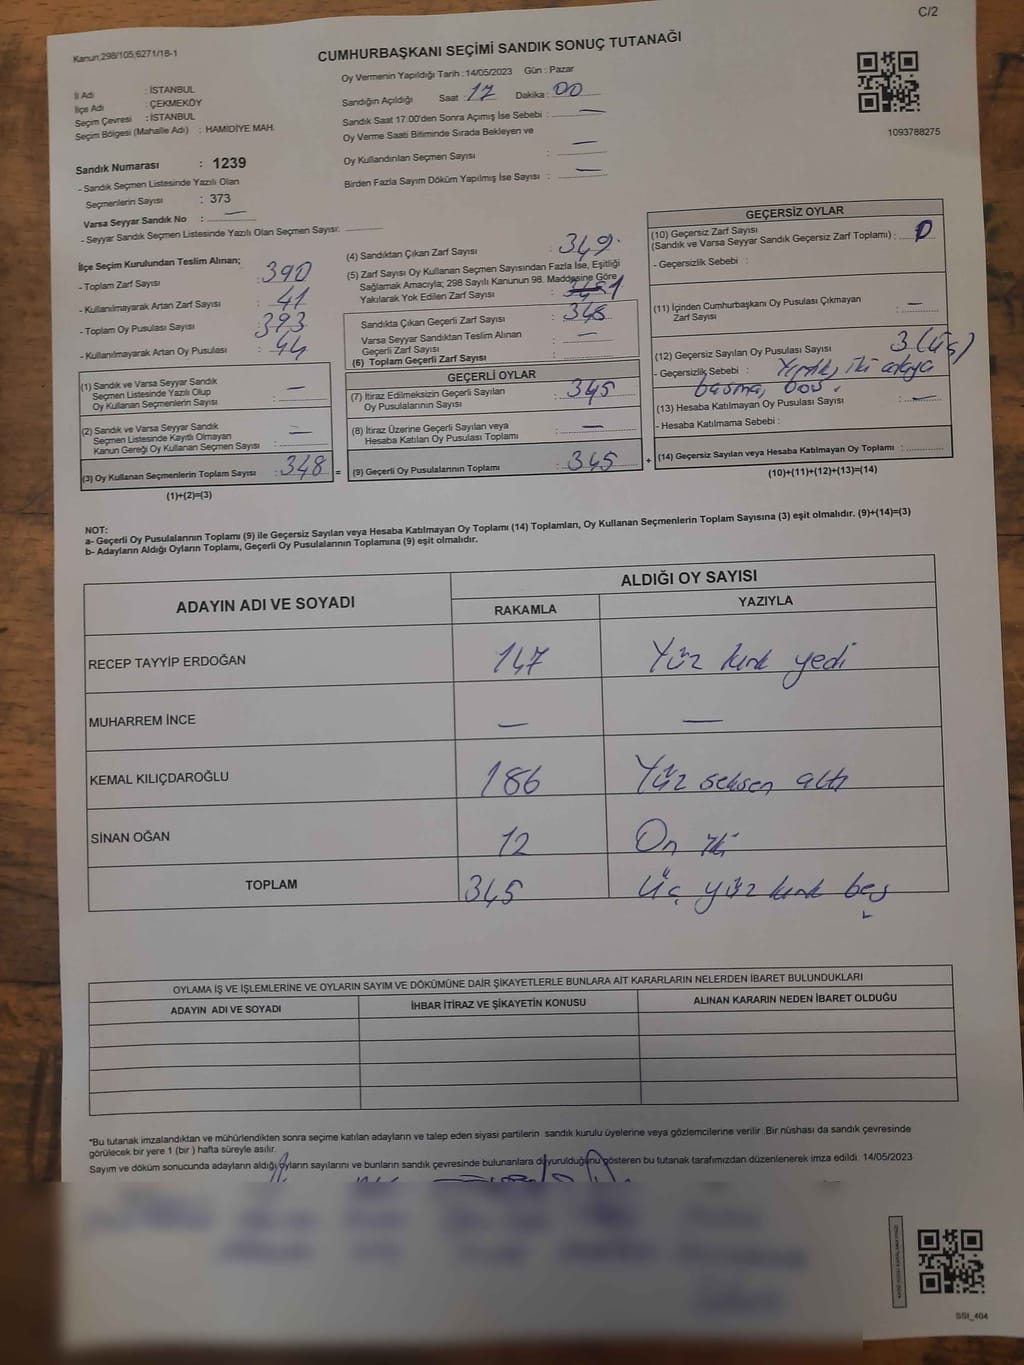 C/2
Kanun:298/105;6271/18-1
CUMHURBAŞKANI SEÇİMİ SANDIK SONUÇ TUTANAĞI
Oy Vermenin Yapıldığı Tarih : 14/05/2023 Gün : Pazar
İl Adı : İSTANBUL
İlçe Adı : ÇEKMEKÖY
Seçim Çevresi : İSTANBUL
Seçim Bölgesi (Mahalle Adı) : HAMİDİYE MAH.
Sandığın Açıldığı Saat : 17 Dakika : 00
Sandık Saat 17:00'den Sonra Açımış İse Sebebi : —
Oy Verme Saati Bitiminde Sırada Bekleyen ve
Oy Kullandırılan Seçmen Sayısı : —
Birden Fazla Sayım Döküm Yapılmış İse Sayısı : —
1093788275
Sandık Numarası : 1239
- Sandık Seçmen Listesinde Yazılı Olan
Seçmenlerin Sayısı : 373
Varsa Seyyar Sandık No : —
- Seyyar Sandık Seçmen Listesinde Yazılı Olan Seçmen Sayısı:
İlçe Seçim Kurulundan Teslim Alınan;
- Toplam Zarf Sayısı : 390
- Kullanılmayarak Artan Zarf Sayısı : 41
- Toplam Oy Pusulası Sayısı : 393
- Kullanılmayarak Artan Oy Pusulası : 44
(1) Sandık ve Varsa Seyyar Sandık
Seçmen Listesinde Yazılı Olup
Oy Kullanan Seçmenlerin Sayısı : —
(2) Sandık ve Varsa Seyyar Sandık
Seçmen Listesinde Kayıtlı Olmayan
Kanun Gereği Oy Kullanan Seçmen Sayısı : —
(3) Oy Kullanan Seçmenlerin Toplam Sayısı : 348 =
(1)+(2)=(3)
(4) Sandıktan Çıkan Zarf Sayısı : 349
(5) Zarf Sayısı Oy Kullanan Seçmen Sayısından Fazla İse, Eşitliği
Sağlamak Amacıyla; 298 Sayılı Kanunun 98. Maddesine Göre
Yakılarak Yok Edilen Zarf Sayısı : 1
Sandıkta Çıkan Geçerli Zarf Sayısı : 348
Varsa Seyyar Sandıktan Teslim Alınan
Geçerli Zarf Sayısı : —
(6) Toplam Geçerli Zarf Sayısı :
GEÇERLİ OYLAR
(7) İtiraz Edilmeksizin Geçerli Sayılan
Oy Pusulalarının Sayısı : 345
(8) İtiraz Üzerine Geçerli Sayılan veya
Hesaba Katılan Oy Pusulası Toplamı : —
(9) Geçerli Oy Pusulalarının Toplamı : 345 +
GEÇERSİZ OYLAR
(10) Geçersiz Zarf Sayısı
(Sandık ve Varsa Seyyar Sandık Geçersiz Zarf Toplamı) : 0
- Geçersizlik Sebebi :
(11) İçinden Cumhurbaşkanı Oy Pusulası Çıkmayan
Zarf Sayısı : —
(12) Geçersiz Sayılan Oy Pusulası Sayısı 3 (üç)
- Geçersizlik Sebebi : Yırtık, iki adaya
basma, boş.
(13) Hesaba Katılmayan Oy Pusulası Sayısı : —
- Hesaba Katılmama Sebebi :
(14) Geçersiz Sayılan veya Hesaba Katılmayan Oy Toplamı :
(10)+(11)+(12)+(13)=(14)
NOT:
a- Geçerli Oy Pusulalarının Toplamı (9) ile Geçersiz Sayılan veya Hesaba Katılmayan Oy Toplamı (14) Toplamları, Oy Kullanan Seçmenlerin Toplam Sayısına (3) eşit olmalıdır. (9)+(14)=(3)
b- Adayların Aldığı Oyların Toplamı, Geçerli Oy Pusulalarının Toplamına (9) eşit olmalıdır.
ADAYIN ADI VE SOYADI ALDIĞI OY SAYISI
RAKAMLA YAZIYLA
RECEP TAYYİP ERDOĞAN 147 Yüz kırk yedi
MUHARREM İNCE — —
KEMAL KILIÇDAROĞLU 186 Yüz seksen altı
SİNAN OĞAN 12 On iki
TOPLAM 345 Üç yüz kırk beş
OYLAMA İŞ VE İŞLEMLERİNE VE OYLARIN SAYIM VE DÖKÜMÜNE DAİR ŞİKAYETLERLE BUNLARA AİT KARARLARIN NELERDEN İBARET BULUNDUKLARI
ADAYIN ADI VE SOYADI İHBAR İTİRAZ VE ŞİKAYETİN KONUSU ALINAN KARARIN NEDEN İBARET OLDUĞU
*Bu tutanak imzalandıktan ve mühürlendikten sonra seçime katılan adayların ve talep eden siyasi partilerin sandık kurulu üyelerine veya gözlemcilerine verilir .Bir nüshası da sandık çevresinde
görülecek bir yere 1 (bir ) hafta süreyle asılır.
Sayım ve döküm sonucunda adayların aldığı oyların sayılarını ve bunların sandık çevresinde bulunanlara duyurulduğunu gösteren bu tutanak tarafımızdan düzenlenerek imza edildi. 14/05/2023
SSI_404